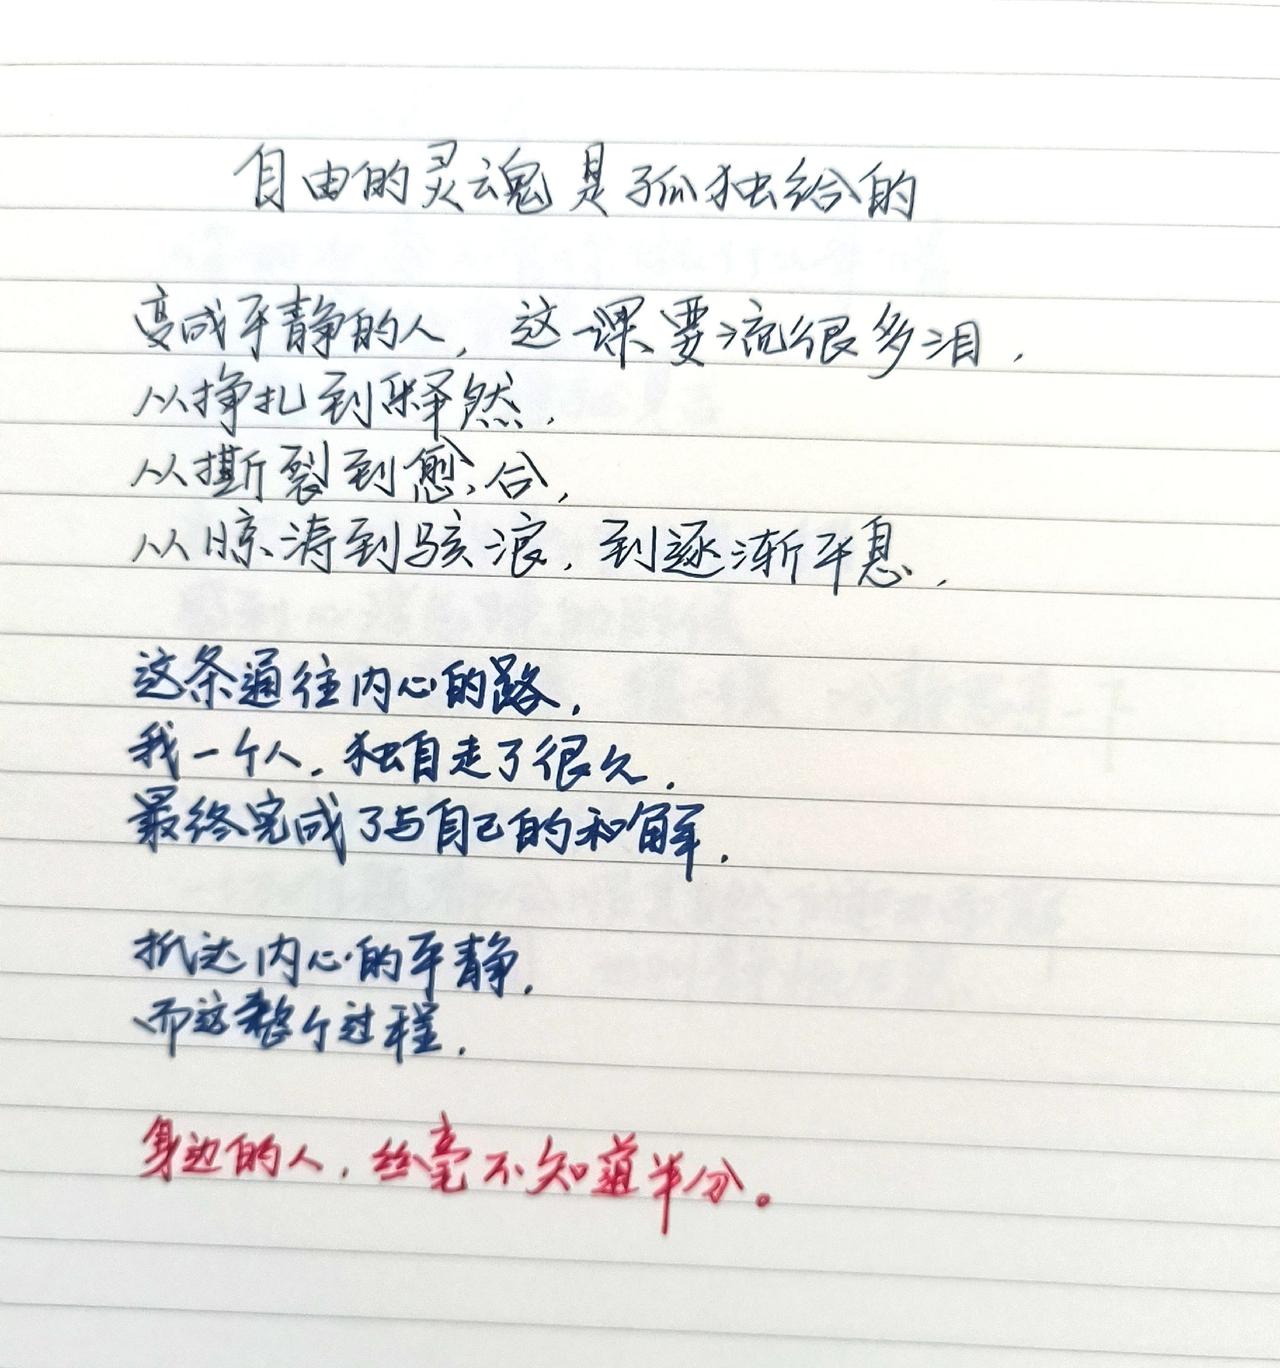 自由的灵魂是孤独给的
变成平静的人，这一课要流很多泪，
从挣扎到释然，
从撕裂到愈合，
从惊涛到骇浪，到逐渐平息，
这条通往内心的路，
我一个人，独自走了很久，
最终完成了与自己的和解，
抵达内心的平静，
而这整个过程，
身边的人，丝毫不知道半分。